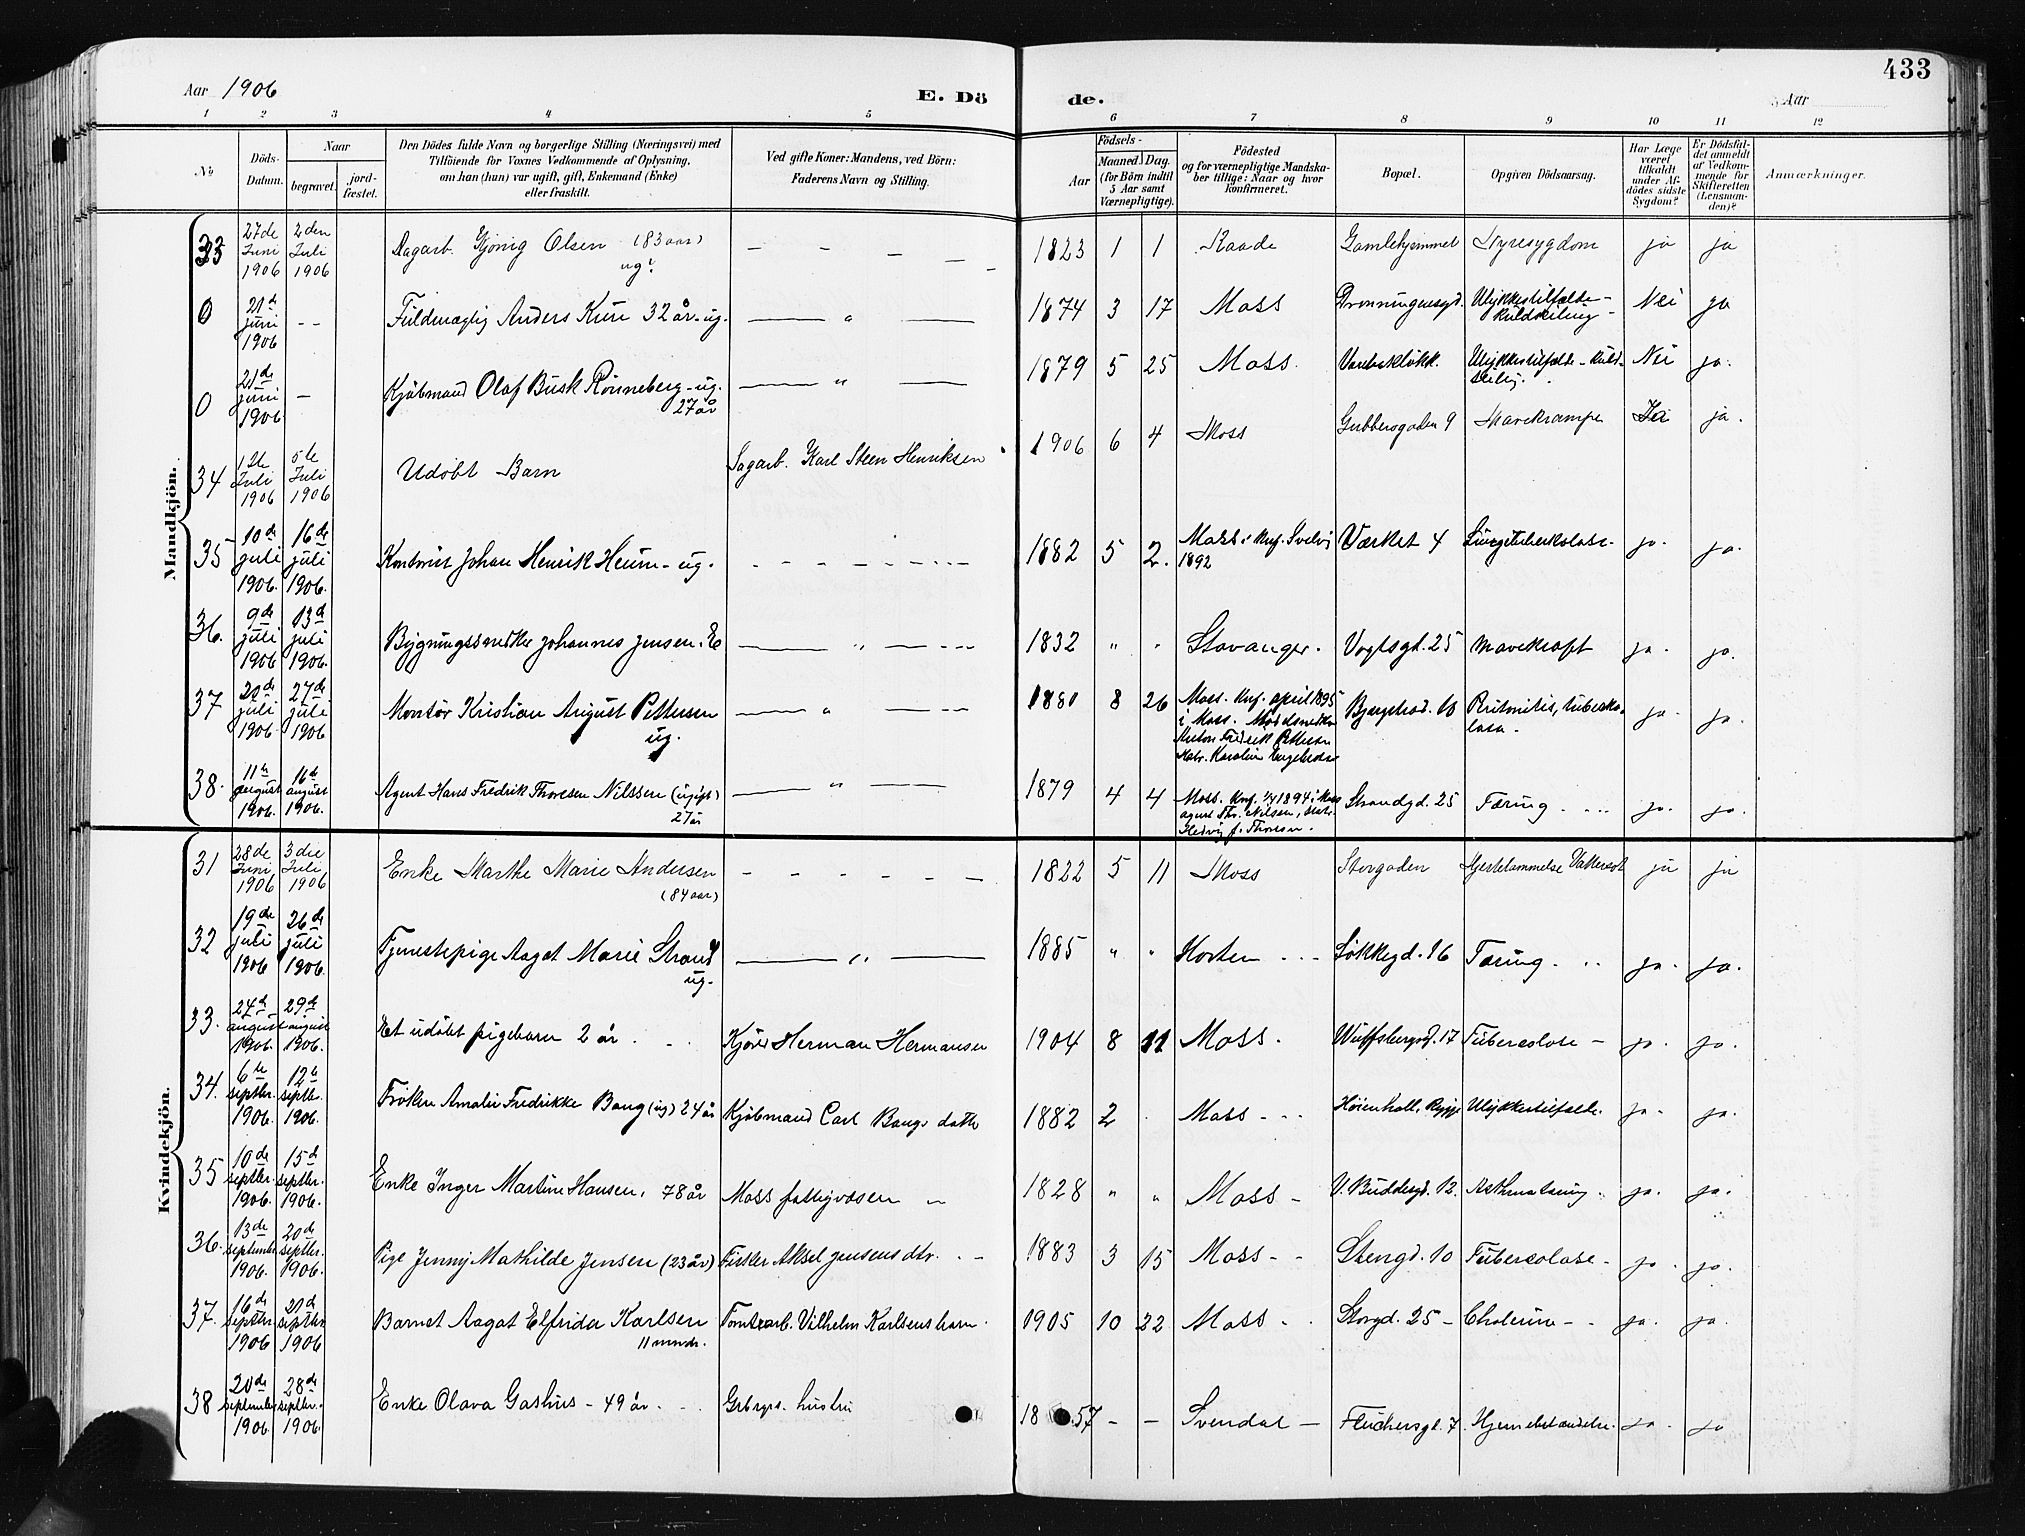 433
Aar 1906
E. Dö
de.
Aar
1 2 3 4 5 6 7 8 9 10 11 12
№
Döds-
Datum.
Naar
begravet.
jord-
fæstet.
Den Dödes fulde Navn og borgerlige Stilling (Næringsvei) med
Tilföiende for Voxnes Vedkommende af Oplysning,
om han (hun) var ugift, gift, Enkemand (Enke)
eller fraskilt.
Ved gifte Koner: Mandens, ved Börn:
Faderens Navn og Stilling.
Aar
Födsels-
Maaned. Dag.
(for Börn indtil
5 Aar samt
Værnepligtige).
Födested
og for værnepligtige Mandska-
ber tillige: Naar og hvor
konfirmeret.
Bopæl.
Opgiven Dödsaarsag.
Har Læge
været
tilkaldt
under Af-
dödes sidste
Sygdom?
Er Dödsfal-
det anmeldt
af Vedkom-
mende for
Skifteretten
(Lensman-
den)?
Anmærkninger.
Mandkjön.
33 27de Juni 1906 2den Juli 1906 Dagarb. Gjönig Olsen (83 aar) ug. — — — — — 1823 1 1 Raade Gamlehjemmet Nyresygdom ja ja
0 21d juni 1906 -- Fuldmægtig Anders Kure 32 år - ug. — " — 1874 3 17 Moss Dronningensgd. Ulykkestilfælde - kuldseiling - Nei ja
0 21de juni 1906 — Kjöbmand Olaf Busk Rönneberg - ug. 27 år — " — 1879 5 25 Moss. Ulykkestilfælde - kuld- seiling. Nei ja.
34 1ste Juli 1906 5te Juli 1906 Udöbt Barn Sagarb. Karl Steen Henriksen 1906 6 4 Moss Gubbersgaden 9 Mavekrampe Ja ja.
35 10de juli 1906. 16de juli 1906. Kontorist Johan Henrik Heum - ug. - - - - - 1882 5 2. Moss. Knf. Svelvig 1892 Værket 4 Lungetuberkolose - ja. ja.
36. 9de juli 1906 13d juli 1906. Bygningssnedker Johannes Jensen. E — " — 1832 " " Stavanger. Vogtsgd. 25 Mavekræft ja. ja.
37 20de juli 1906. 27de juli 1906. Montör Kristian August Pettersen ug. — " — 1880 8 26 Moss. Knf. april 1895 i Moss. Anton Fredrik Pettersen Peritonitis, tuberko- losa. ja. ja.
38. 11te august 1906. 16de august 1906. Agent Hans Fredrik Thoresen Nilssen (ugift) 27 år — " — 1879 4 4 Moss. Knf. 1894 i Moss agent Thr. Nilsen, Hedvig f. Thoresen. Strandgd. 25 Tæring. ja. ja.
Kvindekjön.
31 28de Juni 1906 3die Juli 1906 Enke Marthe Marie Andersen (84 aar) - - - - - - 1822 5 11 Moss Storgaden Hjertelammelse Vattersot ja ja
32 19de juli 1906 26de juli 1906. Tjenestepige Aagot Marie Strand ug. — " — 1885 " " Horten - - - Lökkegd. 16 Tæring. ja. ja.
33. 24d august 1906. 29de august 1906. Et udöbt pigebarn 2 år Herman Hermansen 1904 8 11 Moss. Wulfsbergsgd. 17 Tuberkolose - ja. ja.
34. 6te septbr. 1906. 12te septbr. 1906. Fröken Amalie Fredrikke Bang (ug) 24 år Kjöbmand Carl Bangs datter 1882 2 . Moss - - - Höienhald, Rygge Ulykkestilfælde. ja. ja.
35 10de septbr. 1906. 15d septbr. 1906. Enke Inger Martine Hansen, 78 år Moss fattigvæsen " 1828 " " Moss - V. Buddesgd. 12. ja. ja.
36. 13de september 1906. 20de septbr. 1906. Pige Jenny Mathilde Jensen (23 år) Fisker Aksel Jensens dtr. - - 1883 3 15 Moss - - Stengd. 10 Tuberkolose - ja. ja.
37. 16de septbr. 1906 21d septbr 1906 Barnet Aagot Elfrida Karlsen 11 mndr. Tomtearb. Vilhelm Karlsens barn. 1905 10 22 Moss - - Storgd. 25 - Cholerine - - ja. ja.
38 20de september 1906. 28de septbr. 1906. Enke Olava Gashus - 49 år. - - hustru 1857 - - Svendal - Fleichersgt. 7. Hjernebetændelse. ja. ja